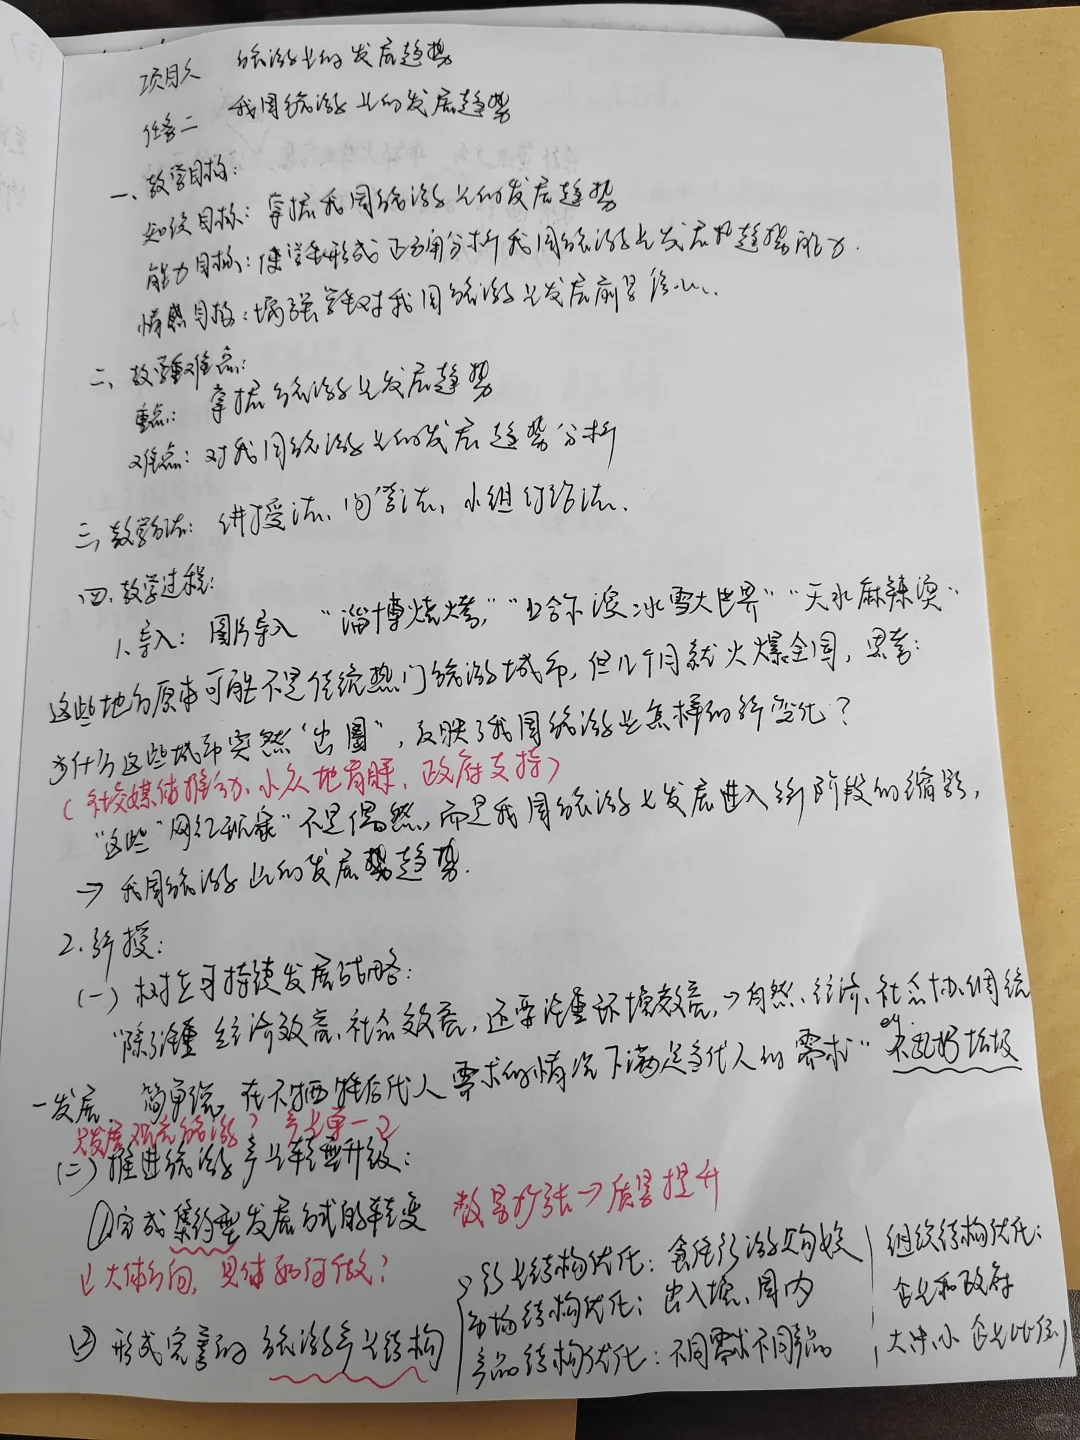 项目九 旅游业的发展趋势
任务二 我国旅游业的发展趋势
一、教学目标:
知识目标: 掌握我国旅游业的发展趋势
能力目标: 使学生形成正确分析我国旅游业发展趋势能力.
情感目标: 增强学生对我国旅游业发展前景信心.
二、教学重难点:
重点: 掌握旅游业发展趋势
难点: 对我国旅游业的发展趋势分析
三、教学方法: 讲授法、问答法、小组讨论法.
四、教学过程:
1.导入: 图片导入 “淄博烧烤,” “哈尔滨冰雪大世界” “天水麻辣烫”
这些地方原本可能不是传统热门旅游城市, 但几个月就火爆全国, 思考:
为什么这些城市突然“出圈”, 反映了我国旅游业怎样的新变化?
(社交媒体推动、小众地青睐, 政府支持)
“这些“网红现象”不是偶然, 而是我国旅游业发展进入新阶段的缩影,
→ 我国旅游业的发展势趋势.
2.新授:
(一) 树立可持续发展战略:
“除了注重经济效益、社会效益, 还要注重环境效益, → 自然、经济、社会协调统
一发展 简单说, 在不牺牲后代人需求的情况下满足当代人的需求” 乱扔垃圾
只发展观光旅游? 产业单一
(二) 推进旅游产业转型升级:
①完成集约型发展方式的转变 数量扩张→质量提升
大体方向, 具体如何做?
② 形式完善的旅游产业结构
行业结构优化: 食住行游购娱
市场结构优化: 出入境、国内
产品结构优化: 不同需求不同产品
组织结构优化:
企业和政府
大中小企业比例